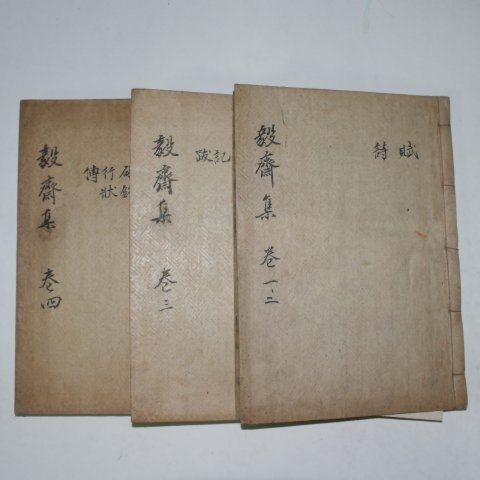 毅齋集 卷一、二
賦
詩
毅齋集 卷三
記
跋
毅齋集 卷四
行狀
傳